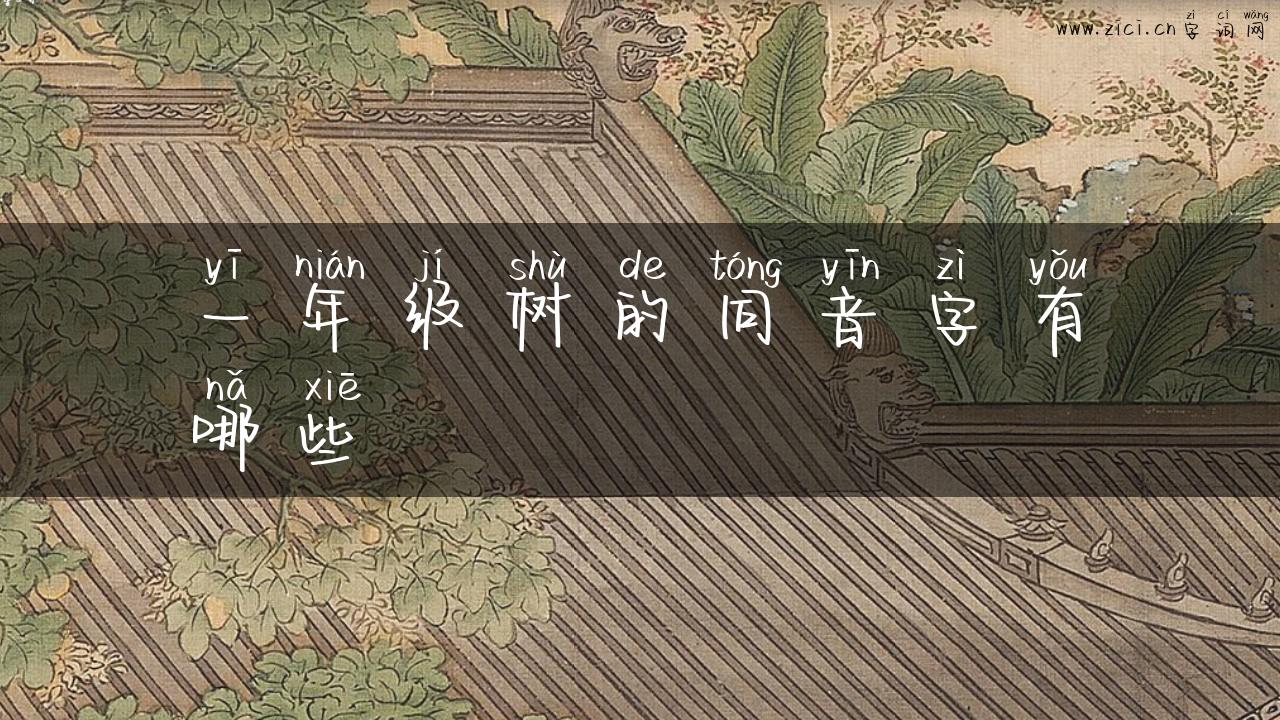 zì cí wǎng
www.zici.cn 字 词 网
yī nián jí shù de tóng yīn zì yǒu
一 年 级 树 的 同 音 字 有
nǎ xiē
哪 些